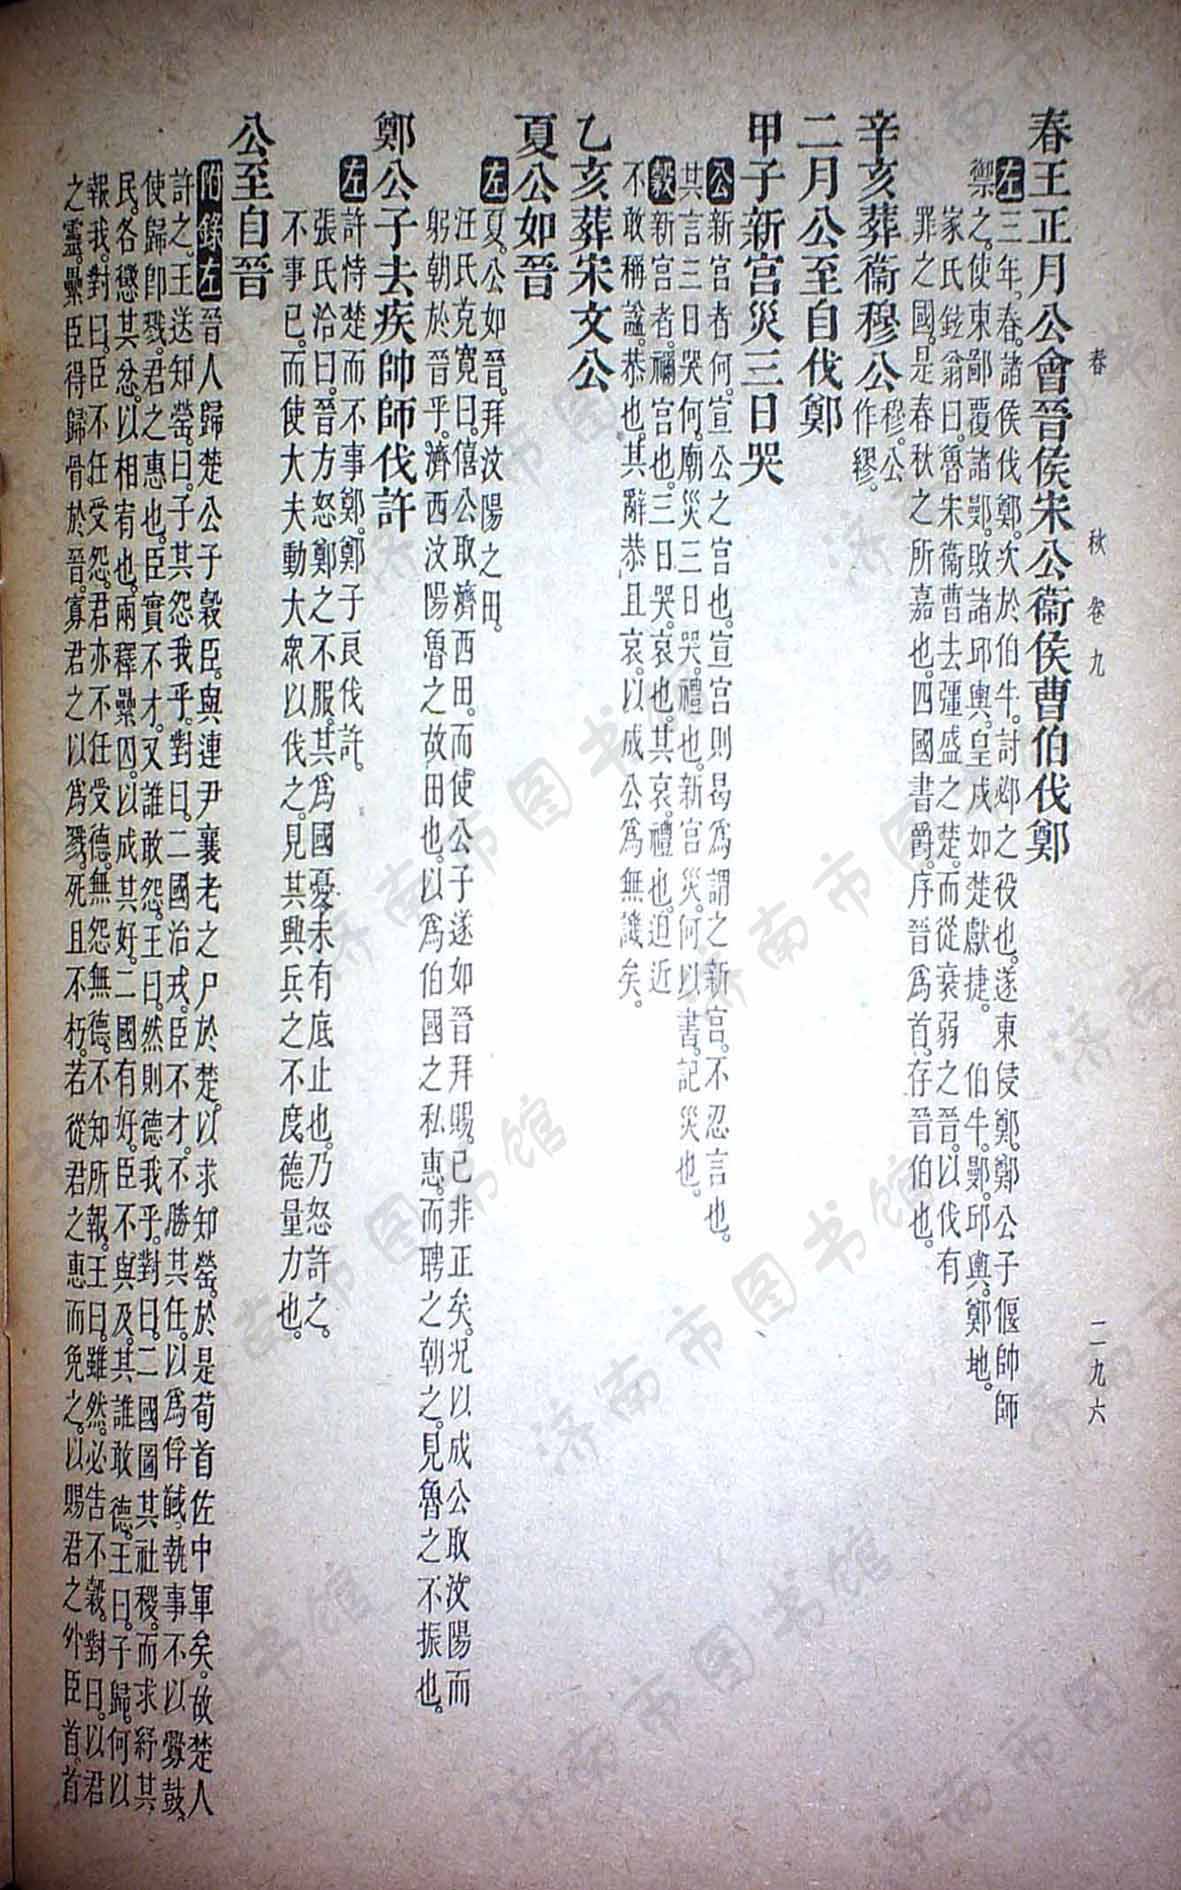 春秋 卷九 二九六
春王正月公會晉侯宋公衞侯曹伯伐鄭
左三年。春。諸侯伐鄭。次於伯牛。討邲之役也。遂東侵鄭。鄭公子偃帥師
禦之。使東鄙覆諸鄤。敗諸邱輿。皇戌如楚獻捷。 伯牛。鄤。邱輿。鄭地。
家氏鉉翁曰。魯宋衞曹去彊盛之楚。而從衰弱之晉。以伐有
罪之國。是春秋之所嘉也。四國書爵。序晉爲首。存晉伯也。
辛亥葬衞穆公穆。公作繆。
二月公至自伐鄭
甲子新宮災三日哭
公新宮者何。宣公之宮也。宣宮則曷爲謂之新宮。不忍言也。
其言三日哭何。廟災三日哭。禮也。新宮災。何以書。記災也。
穀新宮者。禰宮也。三日哭。哀也。其哀。禮也。迫近
不敢稱諡。恭也。其辭恭且哀。以成公爲無譏矣。
乙亥葬宋文公
夏公如晉
左夏。公如晉。拜汶陽之田。
汪氏克寬曰。僖公取濟西田。而使公子遂如晉拜賜。已非正矣。況以成公取汶陽而
躬朝於晉乎。濟西汶陽魯之故田也。以爲伯國之私惠。而聘之朝之。見魯之不振也。
鄭公子去疾帥師伐許
左許恃楚而不事鄭。鄭子良伐許。
張氏洽曰。晉方怒鄭之不服。其爲國憂未有底止也。乃怒許之。
不事已。而使大夫動大衆以伐之。見其興兵之不度德量力也。
公至自晉
附錄左晉人歸楚公子穀臣。與連尹襄老之尸於楚。以求知罃。於是荀首佐中軍矣。故楚人
許之。王送知罃。曰。子其怨我乎。對曰。二國治戎。臣不才。不勝其任。以爲俘馘。執事不以釁鼓。
使歸卽戮。君之惠也。臣實不才。又誰敢怨。王曰。然則德我乎。對曰。二國圖其社稷。而求紓其
民。各懲其忿。以相宥也。兩釋纍囚。以成其好。二國有好。臣不與及。其誰敢德。王曰。子歸。何以
報我。對曰。臣不任受怨。君亦不任受德。無怨無德。不知所報。王曰。雖然。必告不穀。對曰。以君
之靈。纍臣得歸骨於晉。寡君之以爲戮。死且不朽。若從君之惠而免之。以賜君之外臣首。首